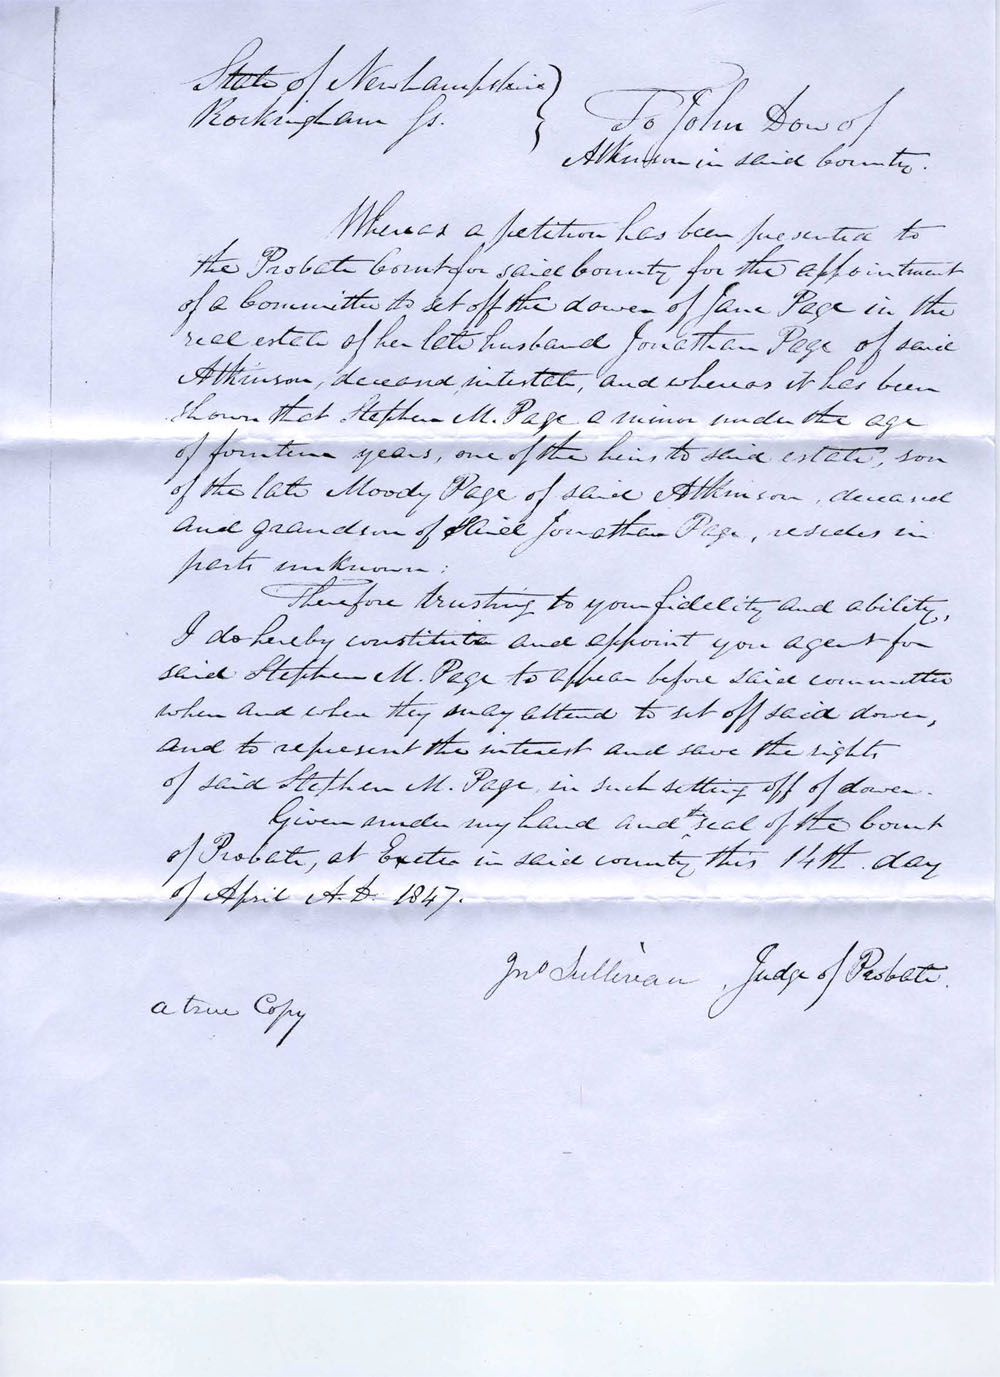 State of New hampshire
Rockingham Ss.
To John Dow of
Atkinson in said County.
Whereas a petition has been presented to
the Probate Court for said County for the appointment
of a Committee to set off the dower of Jane Page in the
real estate of her late husband Jonathan Page of said
Atkinson, deceased, intestate, and whereas it has been
shown that Stephen M. Page a minor under the age
of fourteen years, one of the heirs to said estate, son
of the late Moody Page of said Atkinson, deceased
and grandson of said Jonathan Page, resides in
parts unknown:
Therefore trusting to your fidelity and ability,
I do hereby constitute and appoint you agent for
said Stephen M. Page to appear before said committee
when and where they may attend to set off said dower,
and to represent the interest and save the rights
of said Stephen M. Page in such setting off of dower.
Given under my hand and the seal of the Court
of Probate, at Exeter in said county this 14th. day
of April A.D. 1847.
Jno Sullivan, Judge of Probate.
a true Copy